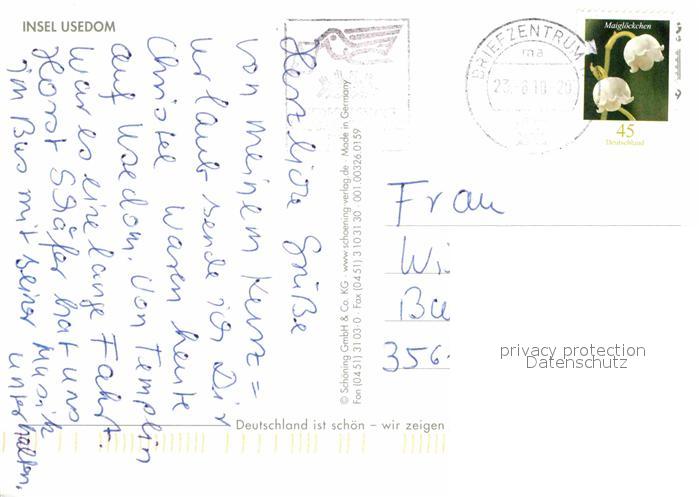 INSEL USEDOM
Herzliche Grüße
von meinem Kurz=
urlaub sende ich Dir
Christel waren heute
auf Usedom. Von Templin
war es eine lange Fahrt.
Horst Schäfer hat uns
im Bus mit seiner Musik
unterhalten.
© Schöning GmbH & Co. KG · www.schoening-verlag.de Made in Germany
Fon (04 51) 31 03-0 · Fax (04 51) 3 10 31 30 001.00326.0159
Deutschland ist schön – wir zeigen
BRIEFZENTRUM
ma
Maiglöckchen
45
Deutschland
Frau
Wi
Ba
356
privacy protection
Datenschutz